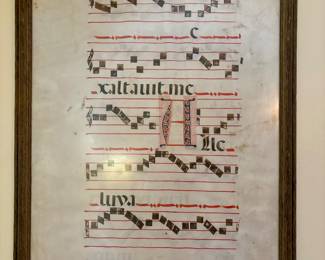 c
xaltauit.me
A
lle
luya